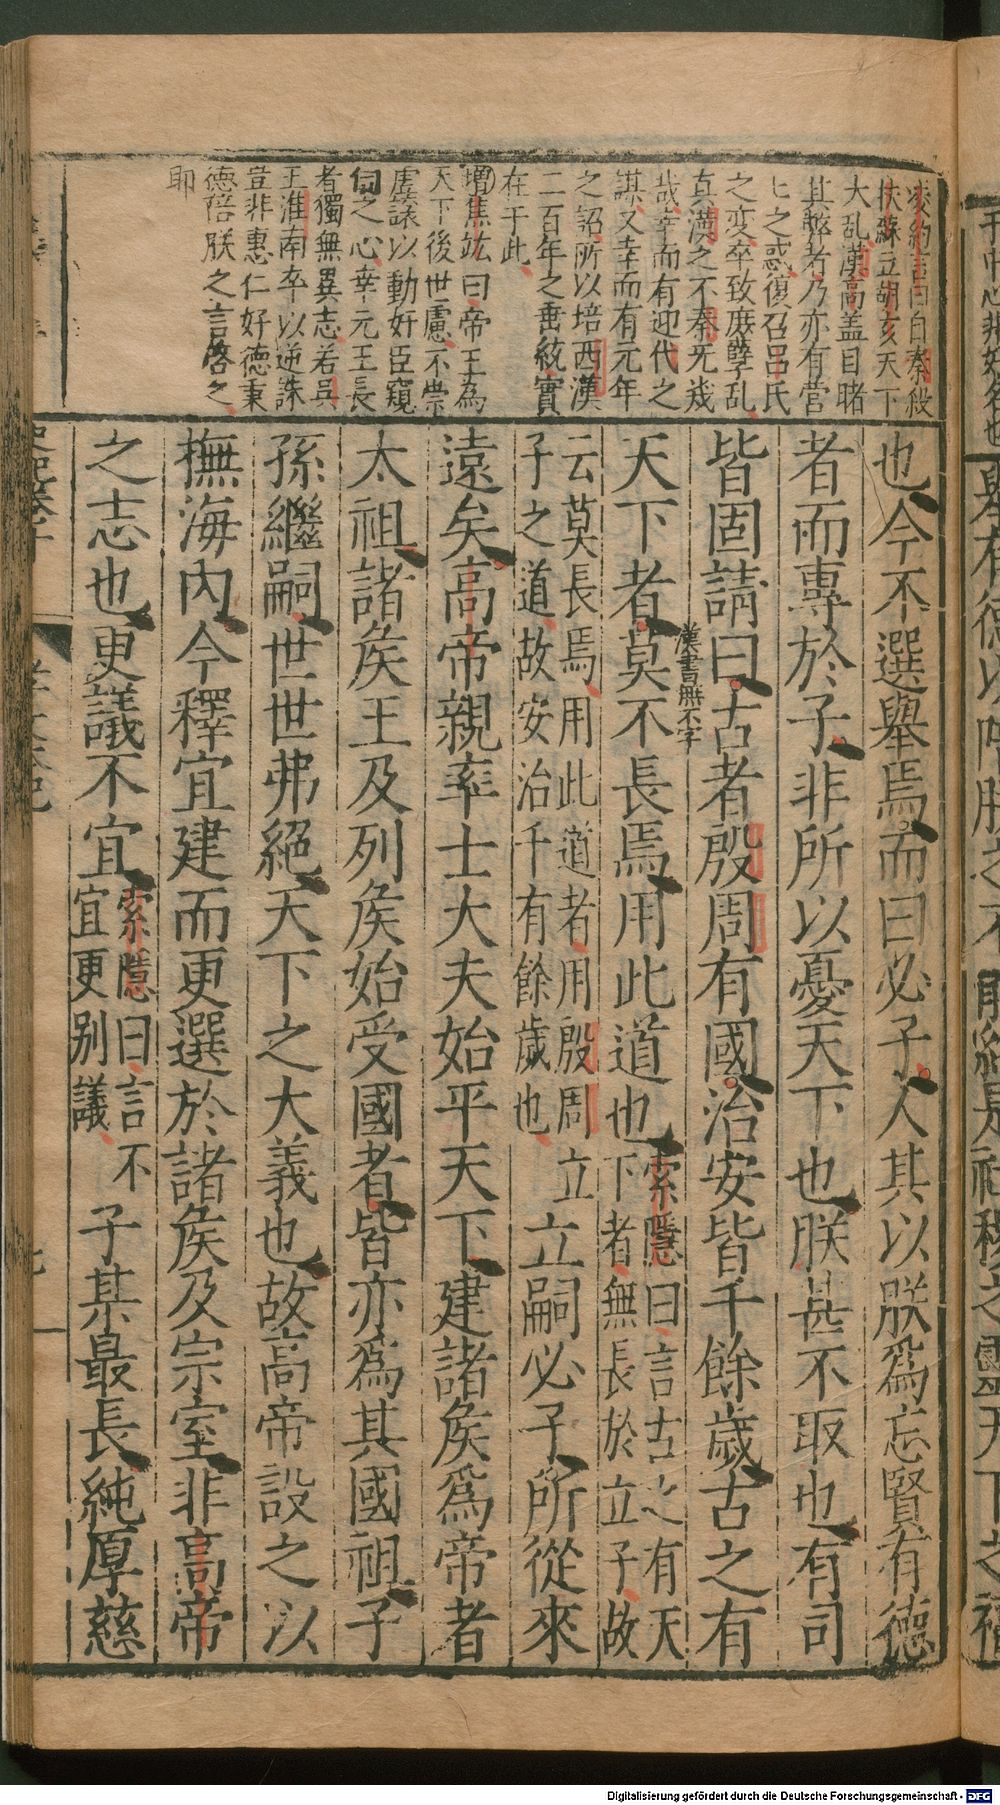 凌約言曰自秦殺
扶蘇立胡亥天下
大乱漢高盖目睹
其弊者乃亦有営
匕之惑復召呂氏
之变卒致庶孽乱
真漢之不秦旡㡬
哉幸而有迎代之
謀又幸而有元年
之詔所以培西漢
二百年之垂統實
在于此
增焦竑曰帝王為
天下後世慮不崇
虚讓以動奸臣窺
伺之心幸元王長
者獨無異志若吳
王淮南卒以逆誅
豈非惠仁好德秉
德陪朕之言啓之
耶
也今不選舉焉而曰必子人其以朕爲忘賢有德
者而專於子非所以憂天下也朕甚不取也有司
皆固請曰古者殷周有國治安皆千餘歲古之有
漢書無不字
天下者莫不長焉用此道也
索隱曰言古之有天
下者無長於立子故
云莫長焉用此道者用殷周立
子之道故安治千有餘歲也
立嗣必子所從來
遠矣高帝親率士大夫始平天下建諸矦爲帝者
太祖諸矦王及列矦始受國者皆亦爲其國祖子
孫繼嗣世世弗絕天下之大義也故高帝設之以
撫海內今釋宜建而更選於諸矦及宗室非高帝
之志也更議不宜
索隱曰言不
宜更別議
子某最長純厚慈
Digitalisierung gefördert durch die Deutsche Forschungsgemeinschaft - DFG